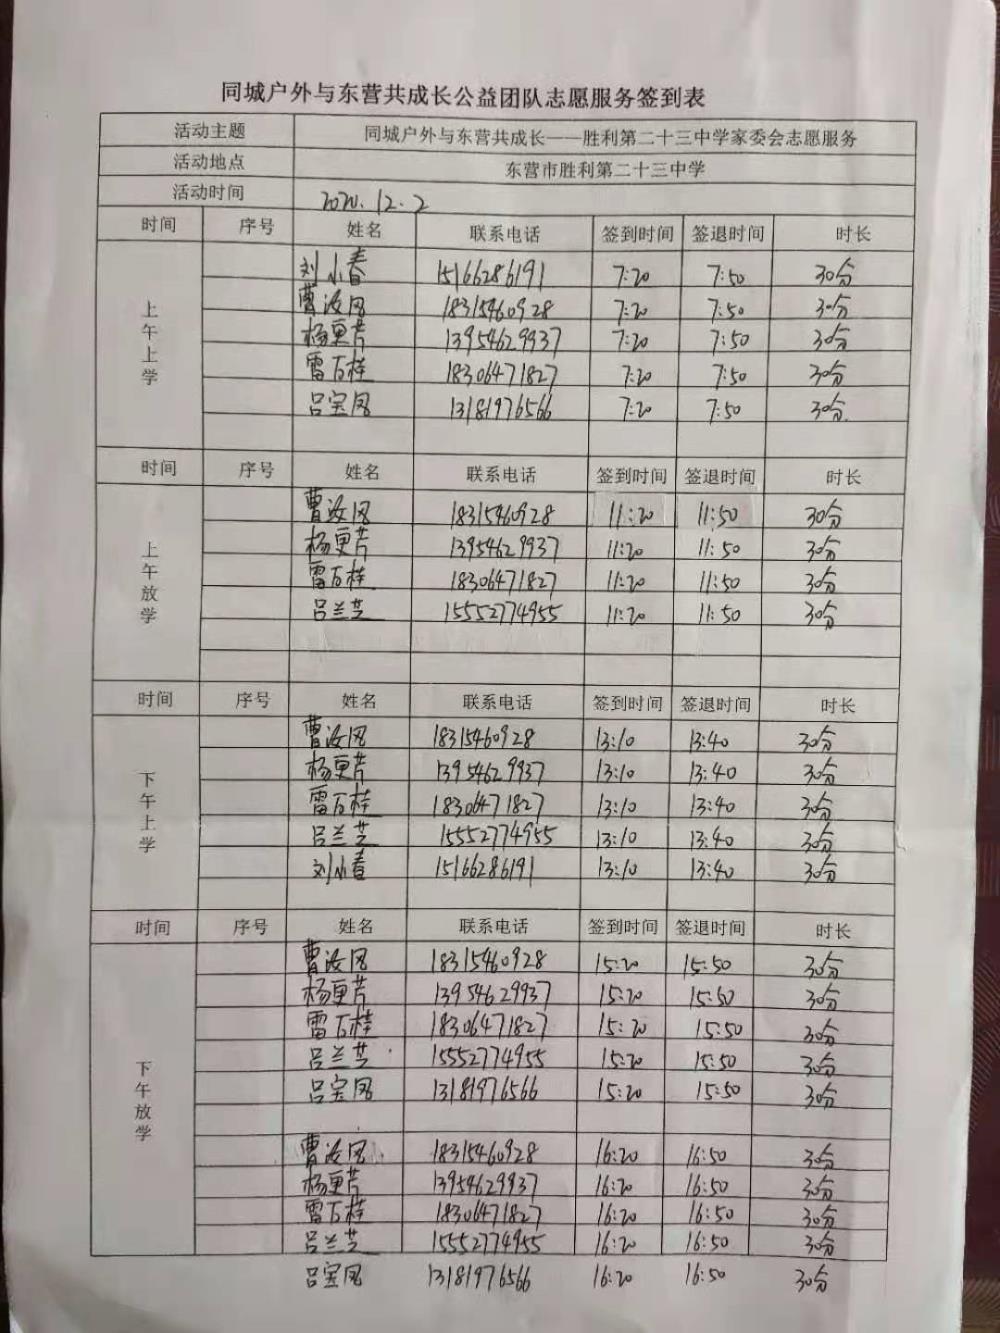 同城户外与东营共成长公益团队志愿服务签到表
活动主题 同城户外与东营共成长——胜利第二十三中学家委会志愿服务
活动地点 东营市胜利第二十三中学
活动时间 2020.12.2
时间 序号 姓名 联系电话 签到时间 签退时间 时长
上午上学
刘小春 15166286191 7:20 7:50 30分
曹汝凤 18315460928 7:20 7:50 30分
杨更芳 13954629937 7:20 7:50 30分
雷百桂 18306471827 7:20 7:50 30分
吕宝凤 13181976566 7:20 7:50 30分.
时间 序号 姓名 联系电话 签到时间 签退时间 时长
上午放学
曹汝凤 18315460928 11:20 11:50 30分
杨更芳 13954629937 11:20 11:50 30分
雷百桂 18306471827 11:20 11:50 30分
吕兰芝 15552774955 11:20 11:50 30分
时间 序号 姓名 联系电话 签到时间 签退时间 时长
下午上学
曹汝凤 18315460928 13:10 13:40 30分
杨更芳 13954629937 13:10 13:40 30分
雷百桂 18306471827 13:10 13:40 30分
吕兰芝 15552774955 13:10 13:40 30分
刘小春 15166286191 13:10 13:40 30分
时间 序号 姓名 联系电话 签到时间 签退时间 时长
下午放学
曹汝凤 18315460928 15:20 15:50 30分
杨更芳 13954629937 15:20 15:50 30分
雷百桂 18306471827 15:20 15:50 30分
吕兰芝 15552774955 15:20 15:50 30分
吕宝凤 13181976566 15:20 15:50 30分
曹汝凤 18315460928 16:20 16:50 30分
杨更芳 13954629937 16:20 16:50 30分
雷百桂 18306471827 16:20 16:50 30分
吕兰芝 15552774955 16:20 16:50 30分
吕宝凤 13181976566 16:20 16:50 30分